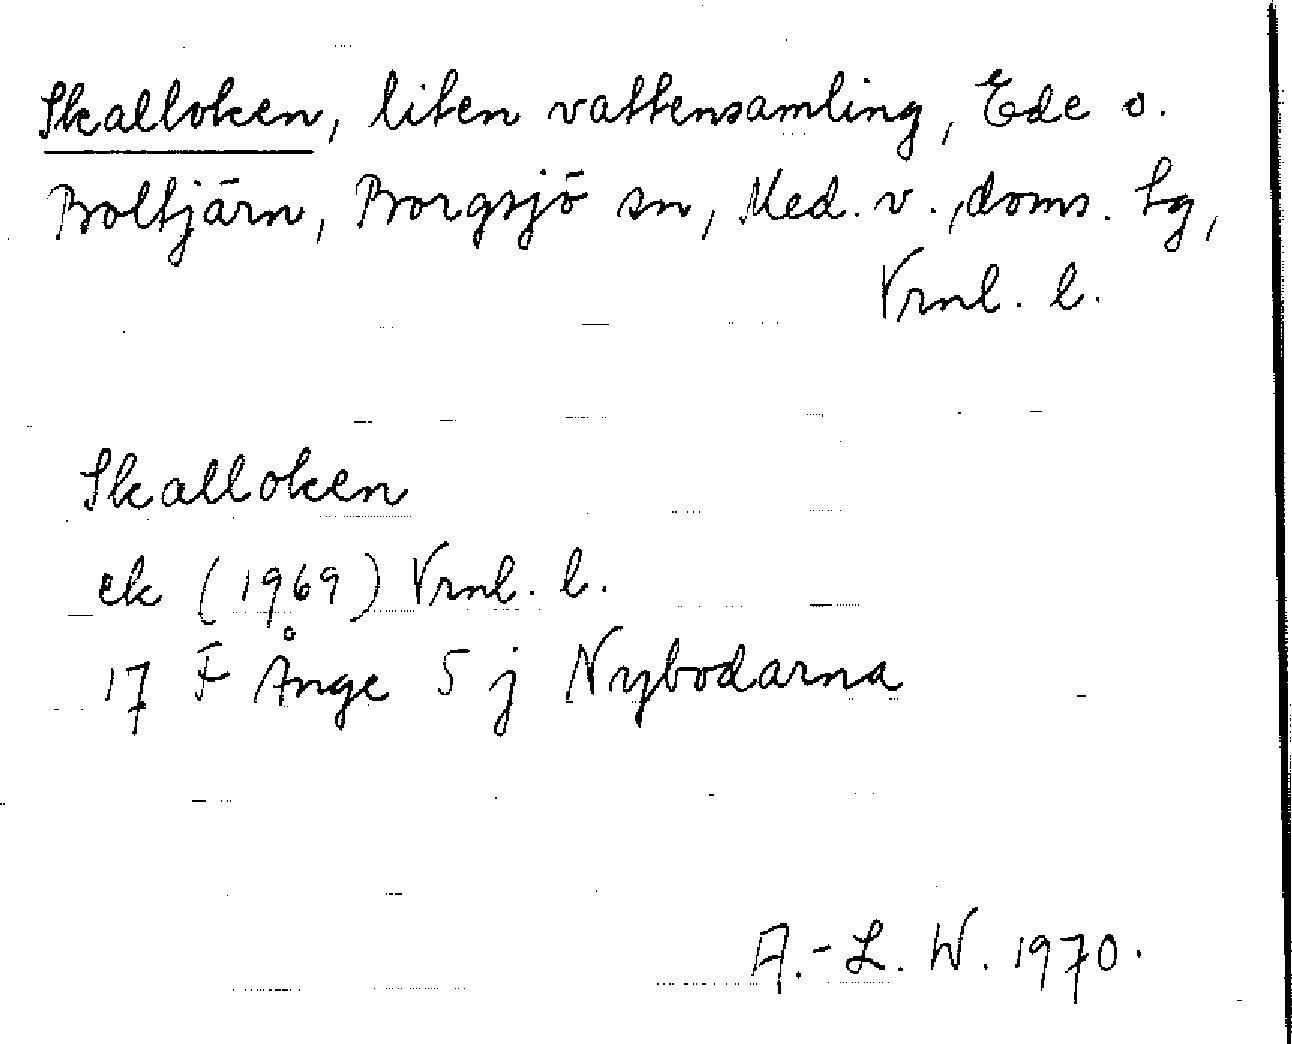 Skalloken, liten vattensamling, Ede o.
Boltjärn, Borgsjö sn, Med. v., doms. tg,
Vrnl. l.
Skalloken
ek (1969) Vrnl. l.
17 F Ånge 5 j Nybodarna
A.-L. W. 1970.